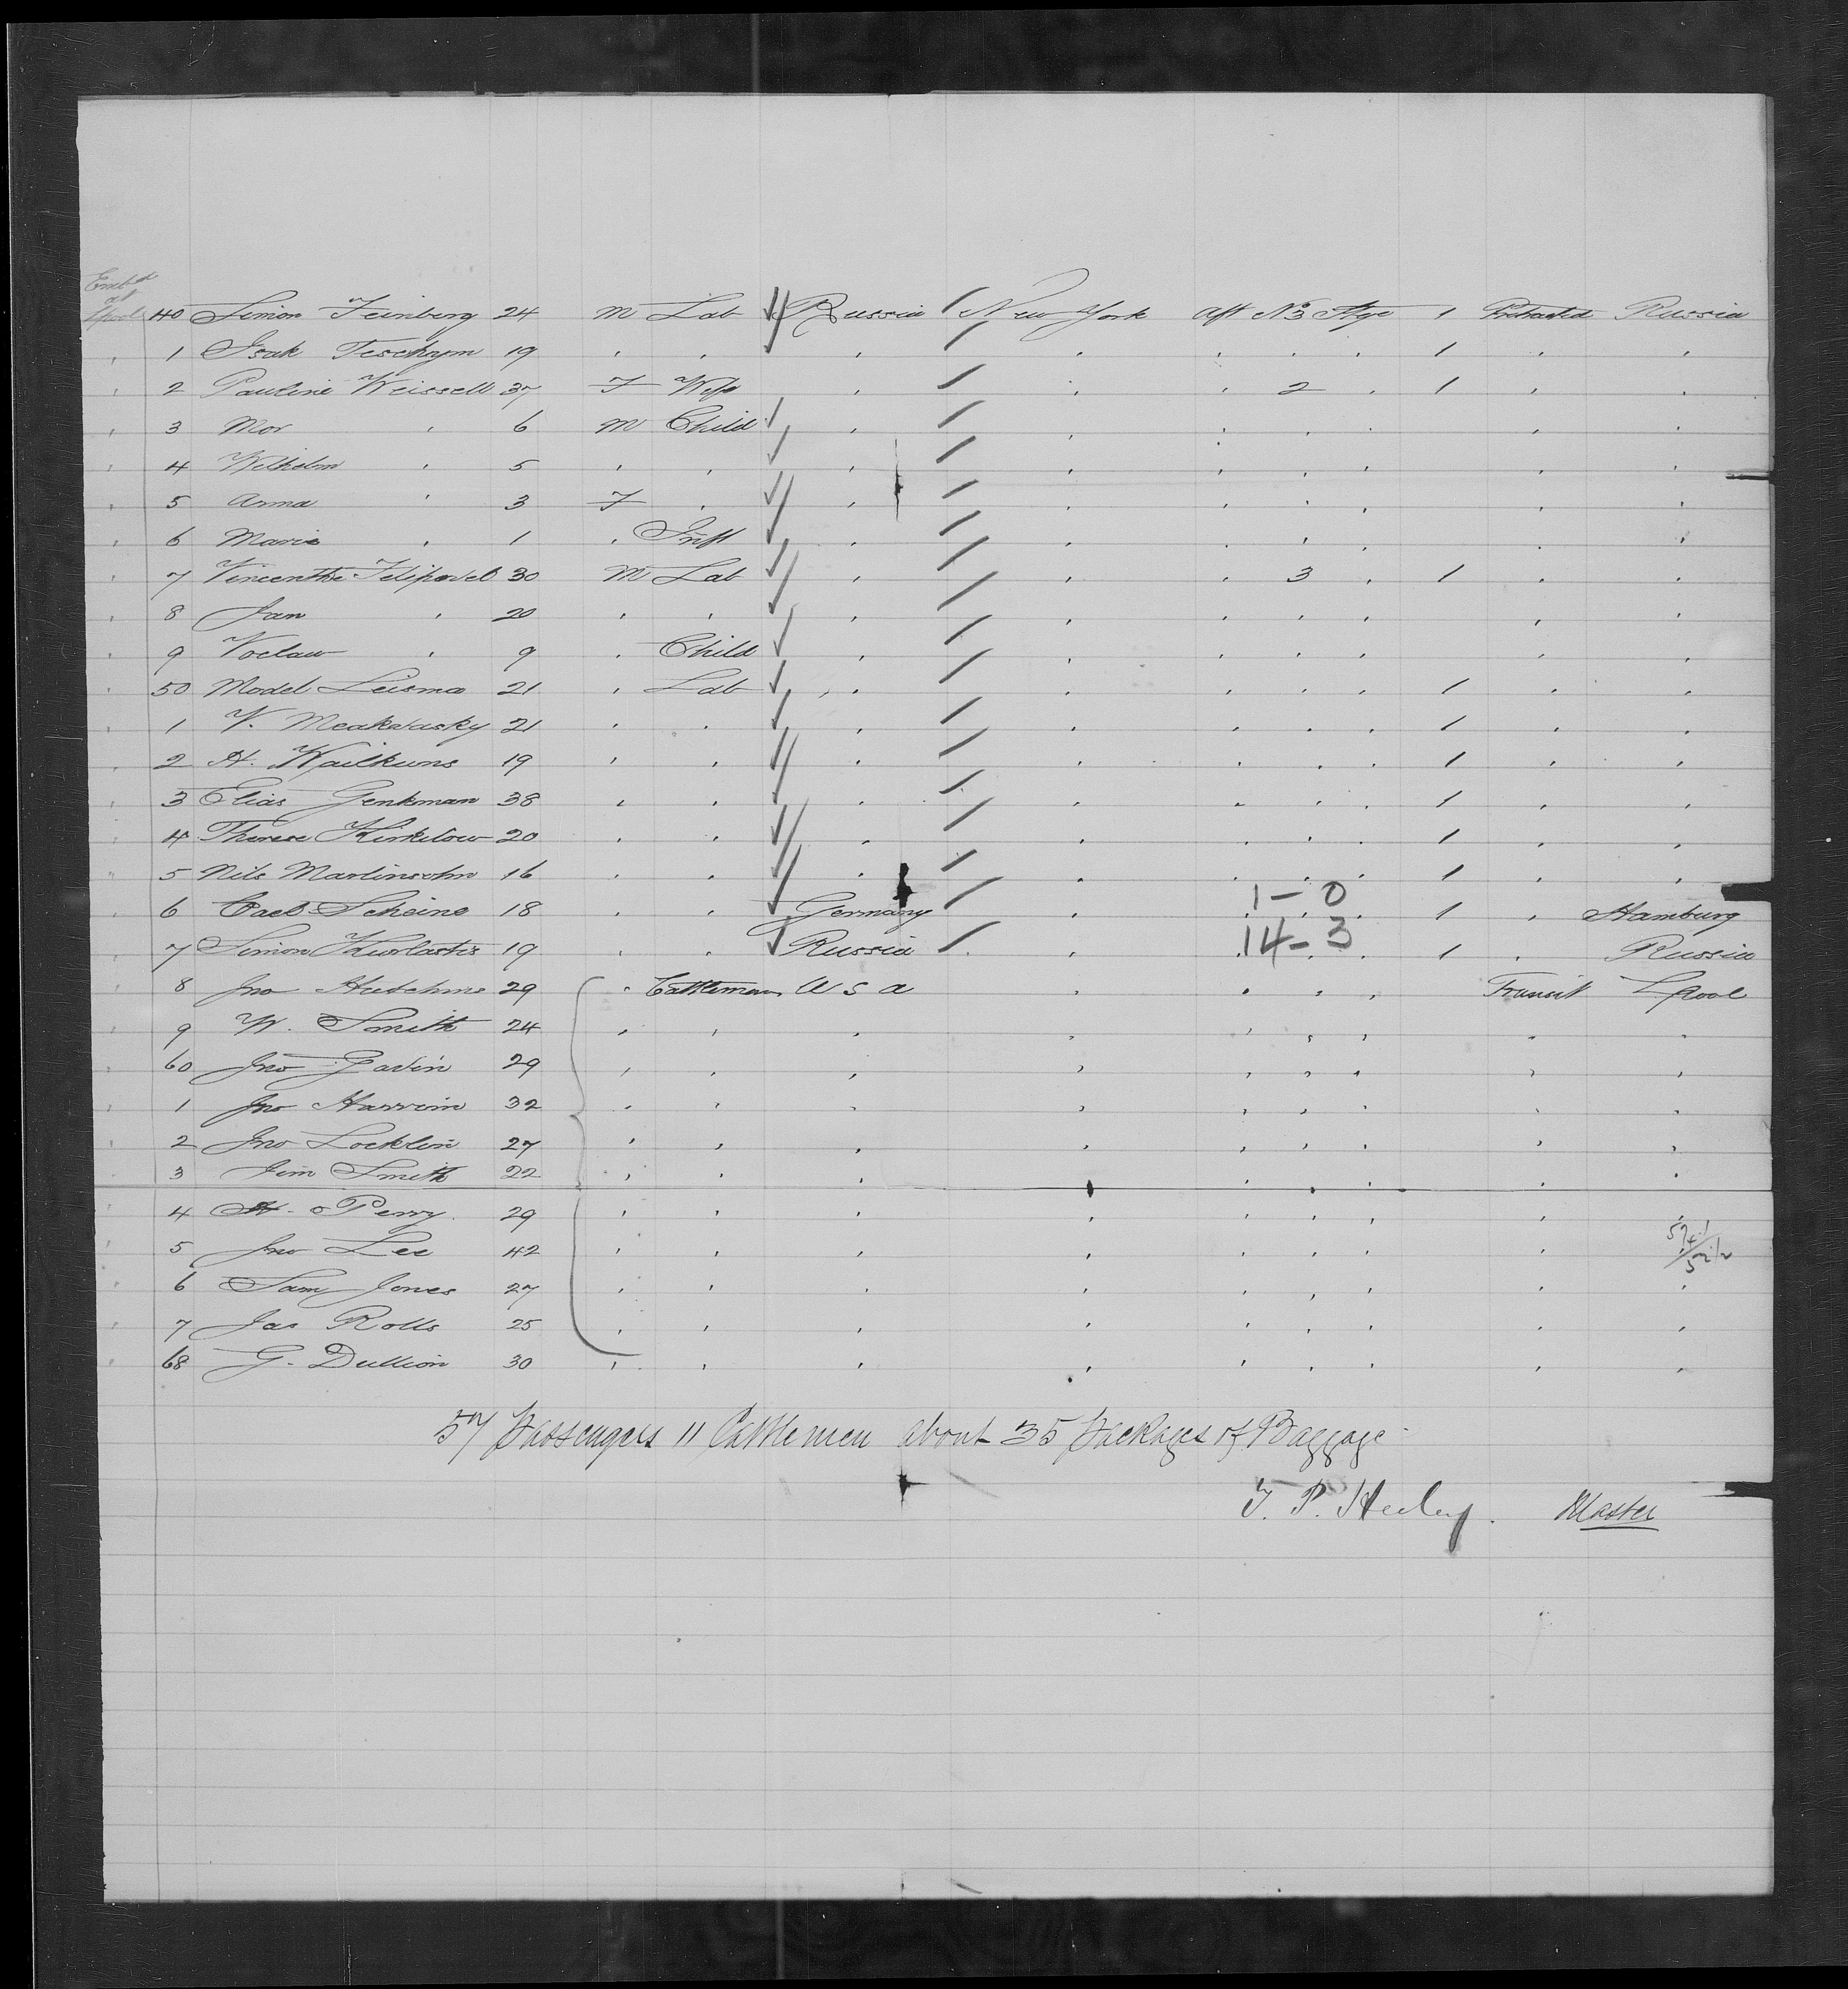 Embd
at
Lpool 40 Simon Feinberg 24 M Lab Russia New York Aft No 3 Stge 1 Protracted Russia
1 Isak Teschym 19 " " " " " " " 1 " "
2 Pauline Weissell 37 F Wife " " " 2 " 1 " "
3 Mor " 6 M Child " " " " " " "
4 Wilhelm " 5 " " " " " " " " "
5 Anna " 3 F " " " " " " " "
6 Marie " 1 " Inft " " " " " " "
7 Vincenthe 30 M Lab " " " 3 " 1 " "
8 Jan " 20 " " " " " " " " "
9 Voclaw " 9 " Child " " " " " " "
50 Model Leisma 21 " Lab " " " " " 1 " "
1 V. 21 " " " " " " " 1 " "
2 A. Wailkuns 19 " " " " " " " 1 " "
3 Elias Genkman 38 " " " " " " " 1 " "
4 Therese Kirkilow 20 " " " " " " " 1 " "
5 Nils Martinsohn 16 " " " " " " " 1 " "
1 - 0
6 Carl Scheine 18 " " Germany " " " " 1 " Hamburg
14 - 3
7 Simon 19 " " Russia " " " " 1 " Russia
8 Jno Hutchins 29 " Cattleman U S A " " " " Transit Lpool
9 W. Smith 24 " " " " " " " " "
60 Jno Gavin 29 " " " " " " " " "
1 Jno Harrim 32 " " " " " " " " "
2 Jno Locklin 27 " " " " " " " " "
3 Jim Smith 22 " " " " " " " " "
4 H. Perry 29 " " " " " " " " "
5 Jno Lee 42 " " " " " " " " "
6 Sam Jones 27 " " " " " " " " "
7 Jas Rolls 25 " " " " " " " " "
68 G. Dullion 30 " " " " " " " " "
57 Passengers 11 Cattlemen about 35 packages of Baggage
T. P. Heeley. Master